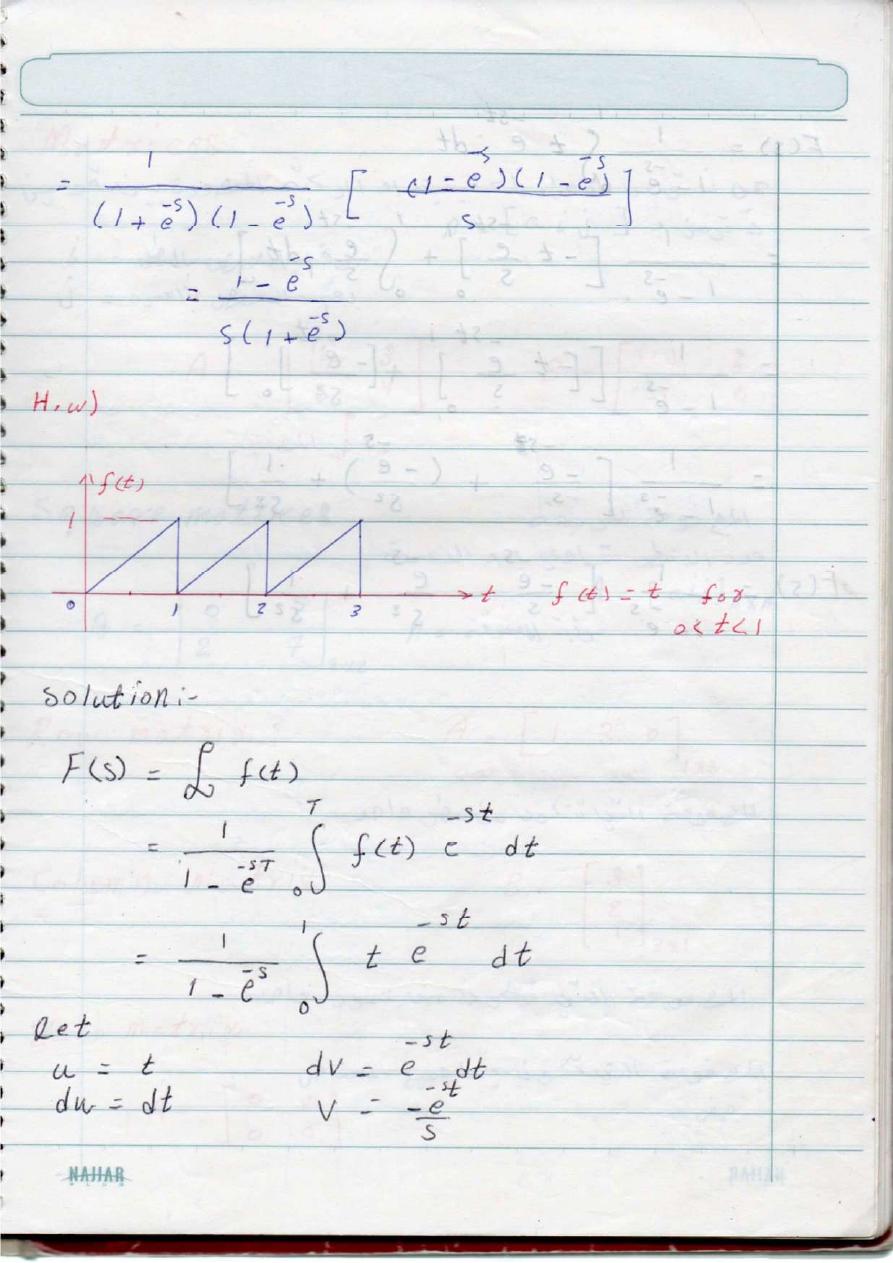 = 1 / (1 + e^-s)(1 - e^-s) [ (1 - e^-s)(1 - e^-s) / s ]
= 1 - e^-s / s(1 + e^-s)
H.w)
f(t)
1
0 1 2 3 t f(t) = t for
0 < t < 1
Solution:-
F(s) = ℒ f(t)
= 1 / 1 - e^-sT ∫_0^T f(t) e^-st dt
= 1 / 1 - e^-s ∫_0^1 t e^-st dt
Let
u = t dv = e^-st dt
du = dt v = -e^-st / s
NAJJAR